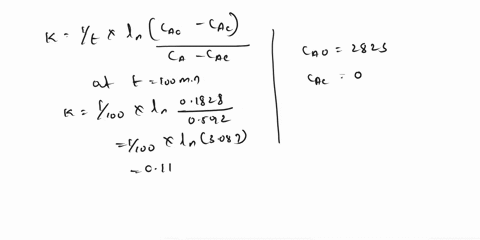 K = 1/t × ln (C_A0 − C_Ac)
C_A − C_Ae
at t = 100 min
K = 1/100 × ln 0.1828
0.592
= 1/100 × ln(3.089)
= 0.11
C_A0 = 2823
C_Ac = 0